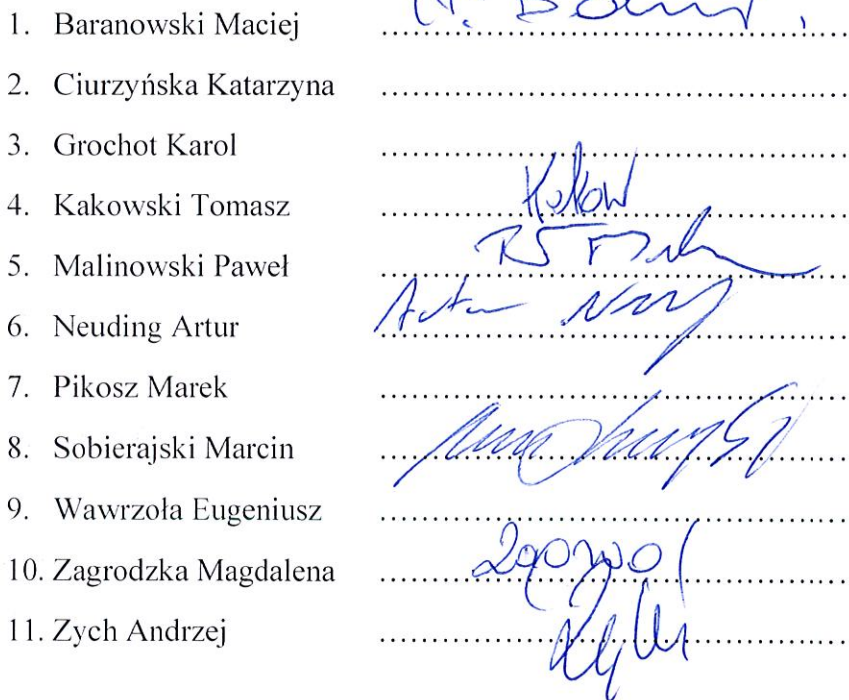 1. Baranowski Maciej
2. Ciurzyńska Katarzyna
3. Grochot Karol
4. Kakowski Tomasz
5. Malinowski Paweł
6. Neuding Artur
7. Pikosz Marek
8. Sobierajski Marcin
9. Wawrzoła Eugeniusz
10. Zagrodzka Magdalena
11. Zych Andrzej